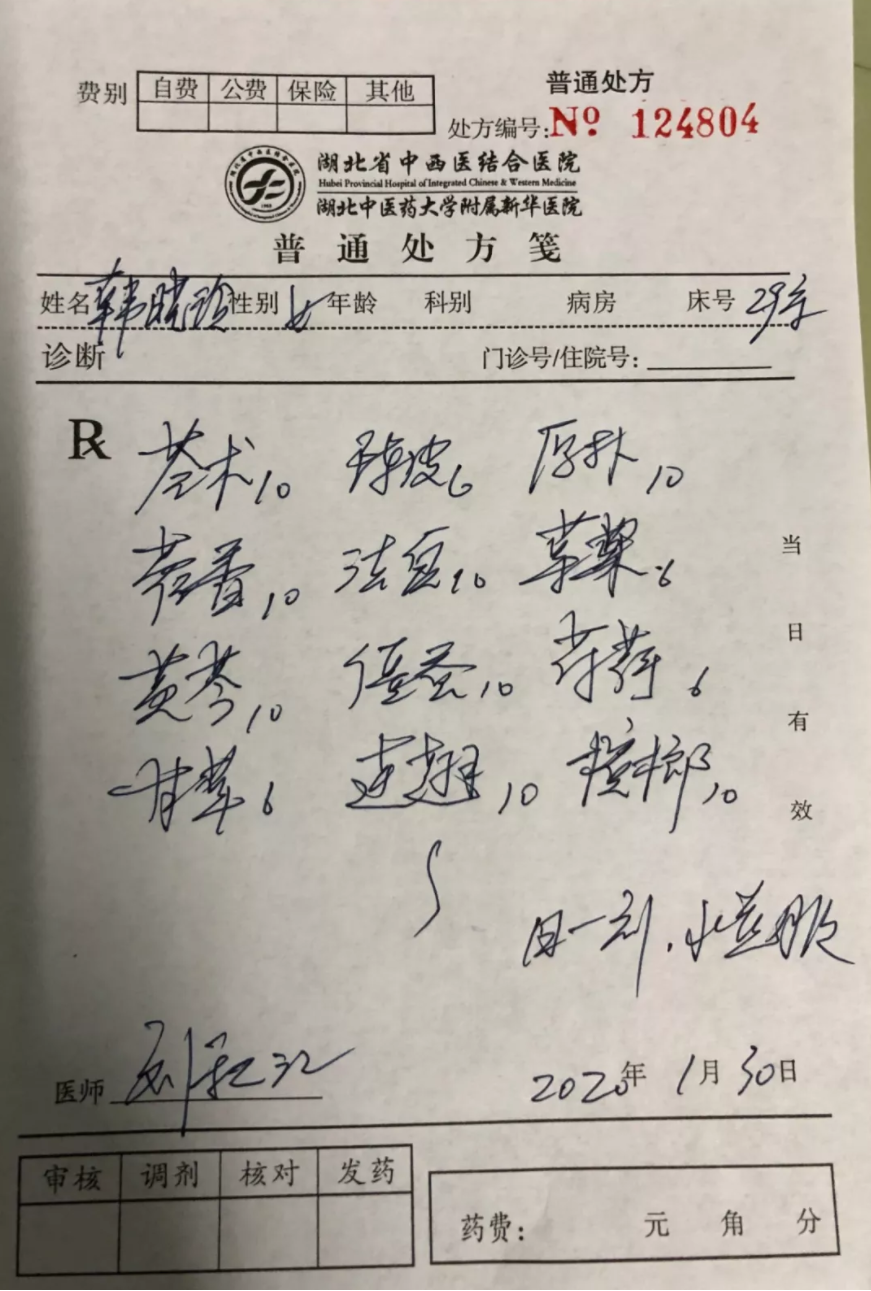 普通处方
费别 自费 公费 保险 其他
处方编号:№ 124804
湖北省中西医结合医院
Hubei Provincial Hospital of Integrated Chinese & Western Medicine
湖北中医药大学附属新华医院
普通处方笺
姓名 韩晓玲 性别 女 年龄 科别 病房 床号 29岁
诊断 门诊号/住院号:
R 苍术10 陈皮6 厚朴10
藿香10 法夏10 草果6
黄芩10 僵蚕10 薄荷6
甘草6 连翘10 槟榔10
当日有效
日一剂,水煎服
医师 2020年1月30日
审核 调剂 核对 发药
药费: 元 角 分